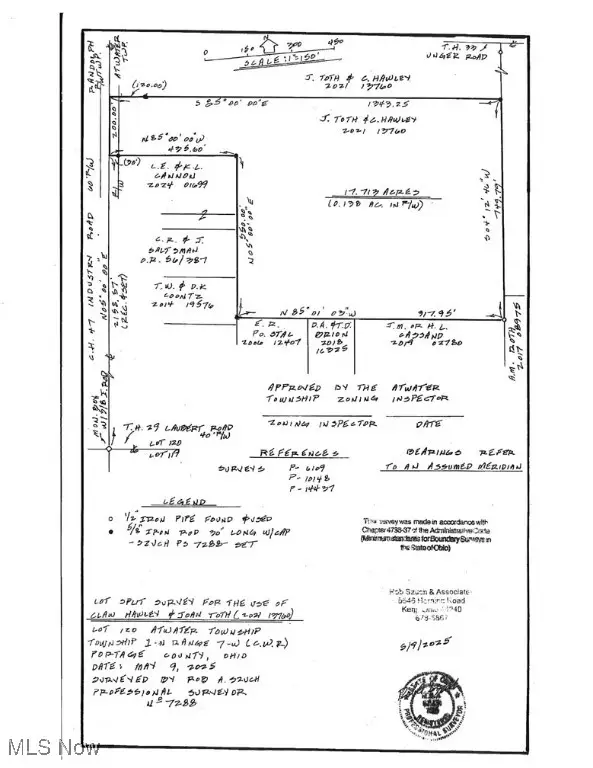 0 150 300 450
SCALE: 1:150'
T.H. 33
UNGER ROAD
RANDOLPH
TWP.
ATWATER
TWP.
(120.00')
J. TOTH & C. HAWLEY
2021 13760
S 85° 00' 00" E
1343.25
J. TOTH & C. HAWLEY
2021 13760
200.00'
N 85° 00' 00" W
435.60'
(30')
R/W
L.E. & K.L.
CANNON
2024 01699
17.713 ACRES
(0.138 AC. IN R/W)
550.00'
N05° 00' 00" E
S04° 12' 46" W
749.79'
C.H. 47 INDUSTRY ROAD 60' R/W
N05° 00' 00" E
2158.57
(REC. & SET)
C.R. & J.
SALTSMAN
O.R. 56/387
T.W. & D.K
COONTZ
2014 19576
N 85° 01' 03" W
917.95'
E. R.
POSTAL
2006 12407
D.A. & T.D.
BRION
2018
16325
J.M. OR H.L.
CASSAND
2019 02780
A.M. ROTH
2017 08975
MON. BOX
W/ 5/8 I. ROD
APPROVED BY THE ATWATER
TOWNSHIP ZONING INSPECTOR
ZONING INSPECTOR DATE
T.H. 29 LAUBERT ROAD
40' R/W
LOT 120
LOT 119
REFERENCES
SURVEYS P-6109
P-10148
P-14437
BEARINGS REFER
TO AN ASSUMED MERIDIAN
LEGEND
○ 1/2" IRON PIPE FOUND & USED
● 5/8" IRON ROD 30" LONG W/CAP
- SZUCH PS 7288 - SET
This survey was made in accordance with
Chapter 4733-37 of the Administrative Code
(Minimum standards for Boundary Surveys in
the State of Ohio)
Rob Szuch & Associates
678-5867
5/9/2025
LOT SPLIT SURVEY FOR THE USE OF
CLAW HAWLEY & JOAN TOTH (2021 13760)
LOT 120 ATWATER TOWNSHIP
TOWNSHIP 1-N RANGE 7-W (C.W.R)
PORTAGE COUNTY, OHIO
DATE: MAY 9, 2025
SURVEYED BY ROB A. SZUCH
PROFESSIONAL SURVEYOR
Nº 7288
STATE OF OHIO
REGISTERED
PROFESSIONAL SURVEYOR
MLS Now